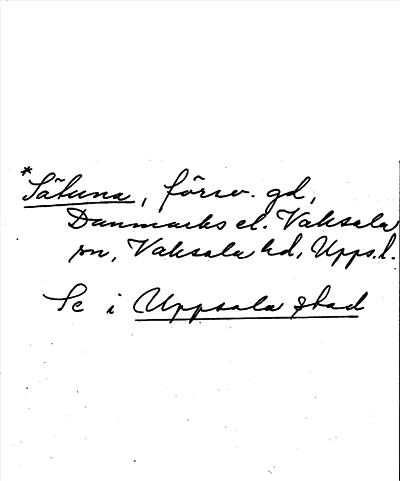 *Sätuna, försv. gd,
Danmarks el. Vaksala
sn, Vaksala hd, Upps.l.
Se i Uppsala stad